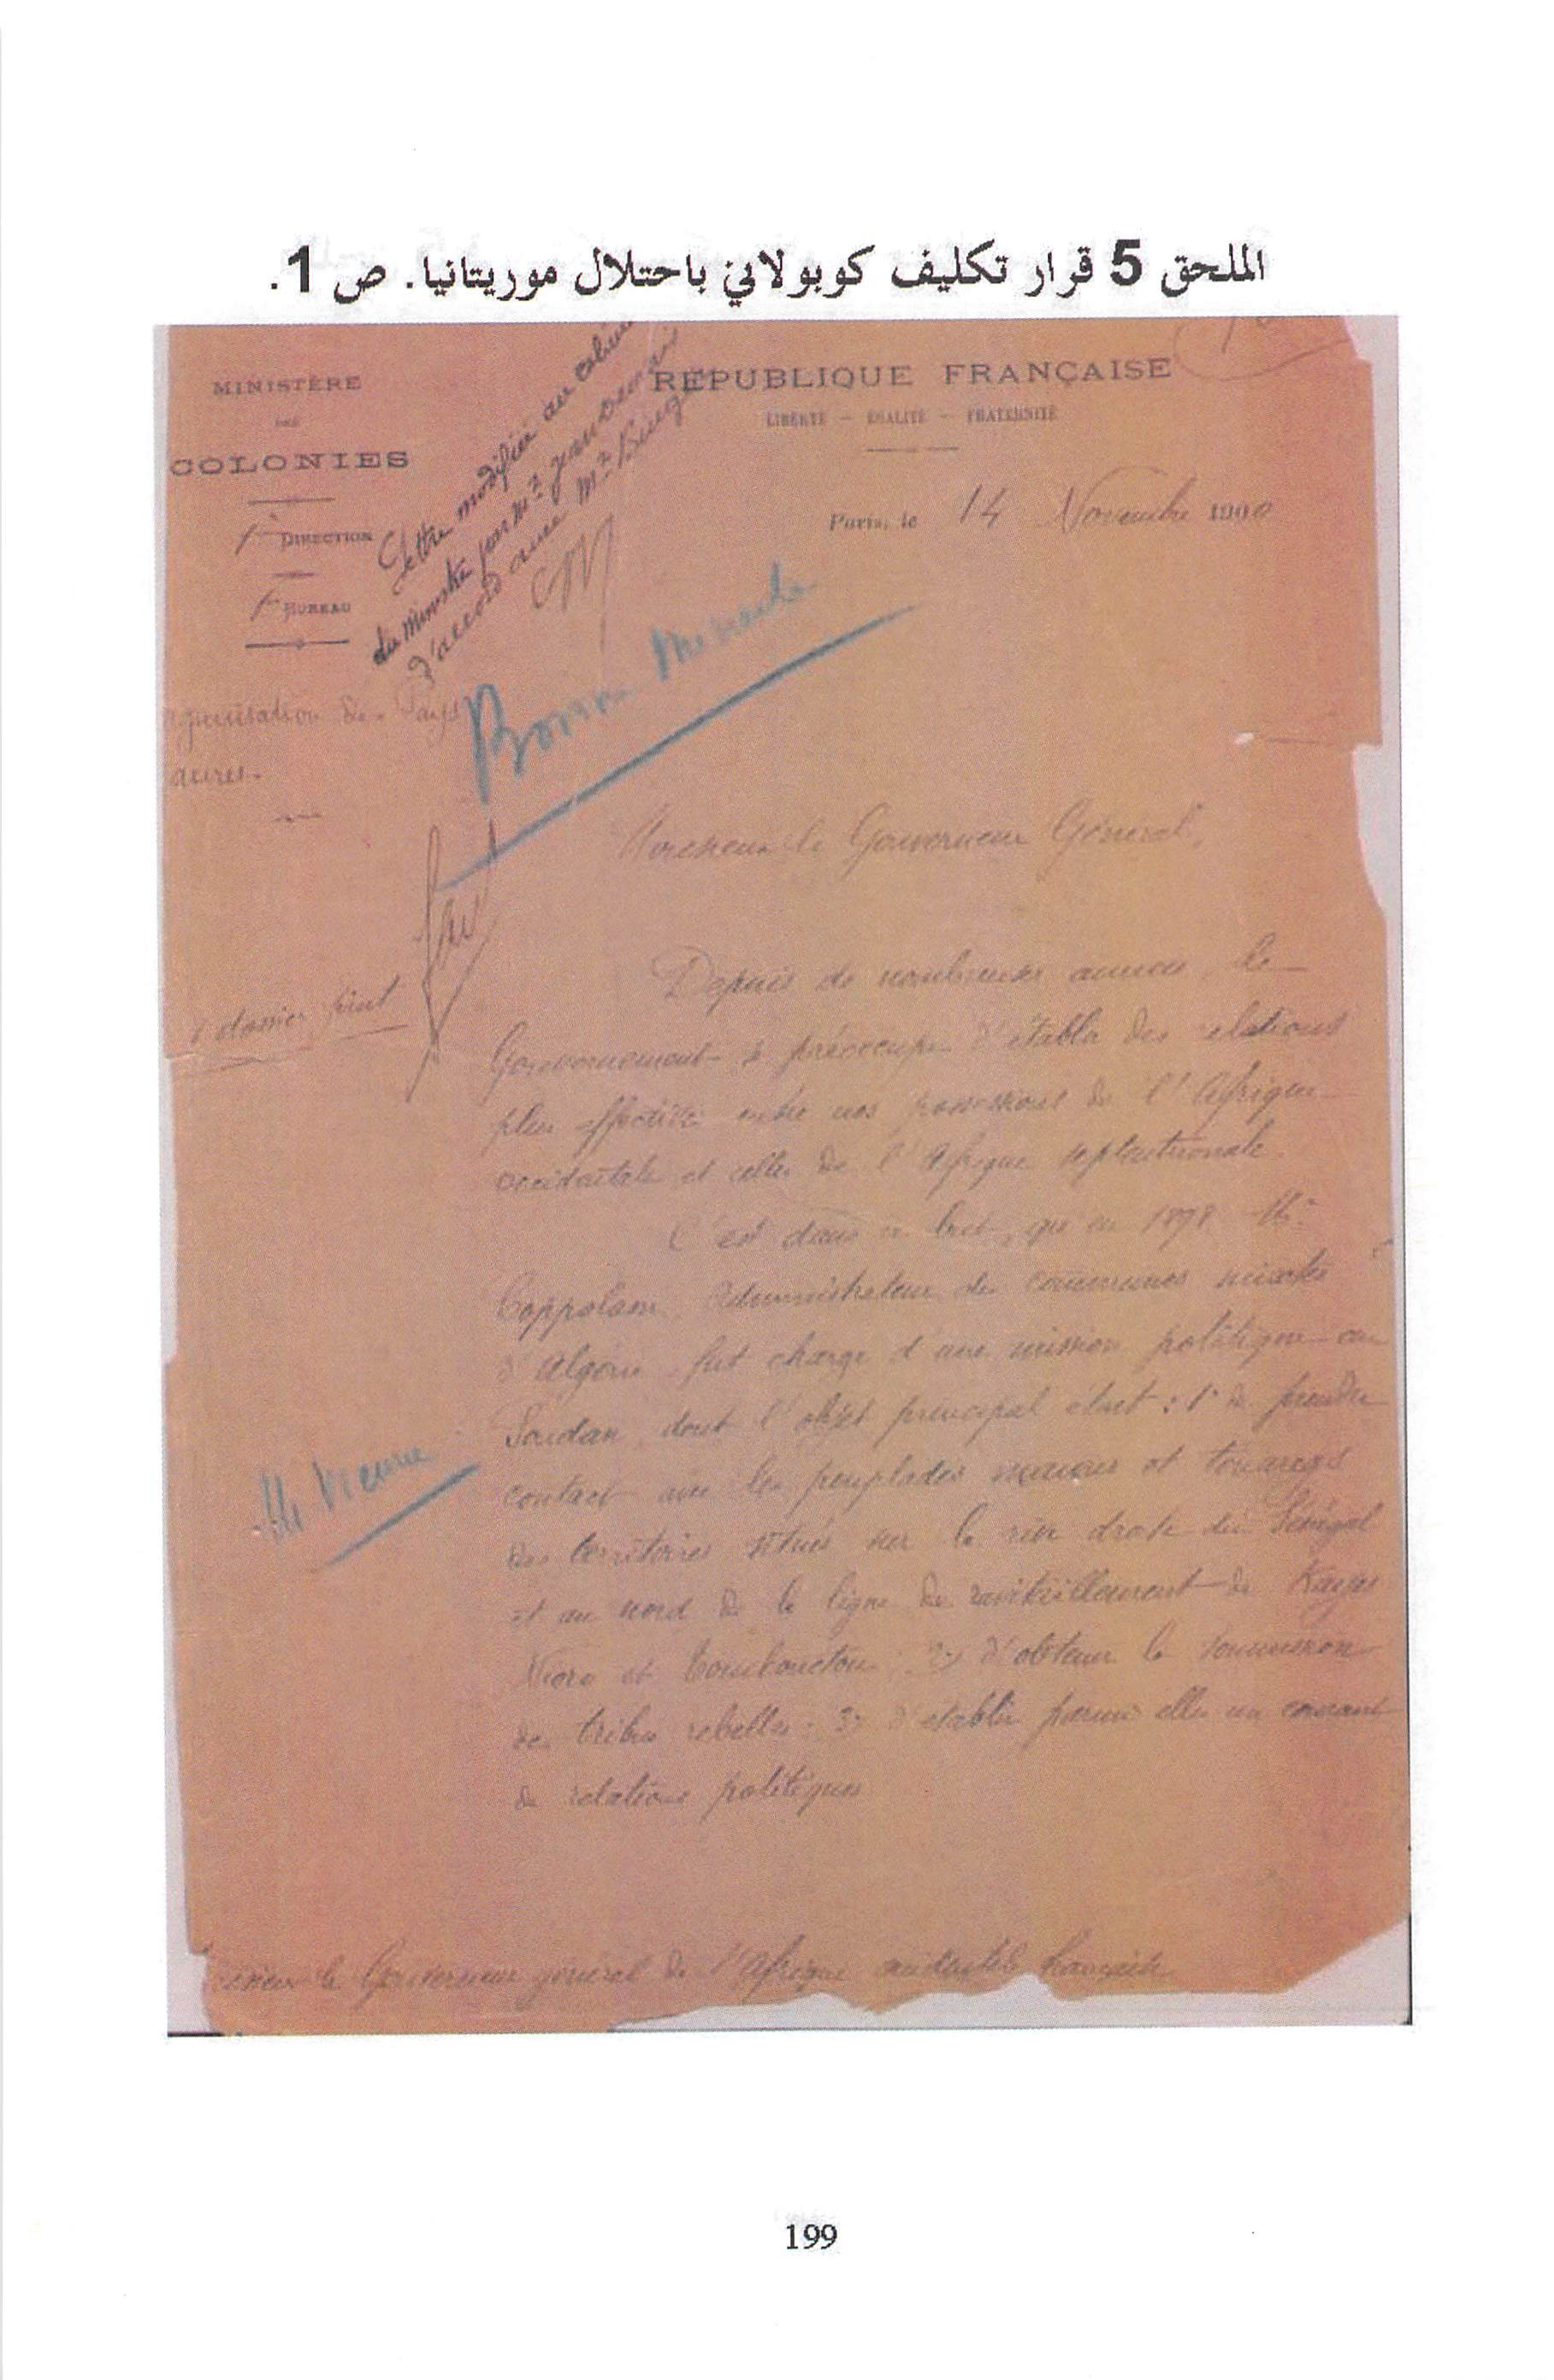 الملحق 5 قرار تكليف كوبولاني باحتلال موريتانيا. ص 1.
MINISTÈRE
DES
COLONIES
1ère DIRECTION
1er BUREAU
Lettre modifiée au cabinet
du Ministre par Mr
d'accord avec Mr Binger
RÉPUBLIQUE FRANÇAISE
LIBERTÉ – ÉGALITÉ – FRATERNITÉ
Paris, le 14 Novembre 1900
Bonne Minute
ganisation des Pays
aures.
Monsieur le Gouverneur Général,
dossier joint
Depuis de nombreuses années, le
Gouvernement se préoccupe d'établir des relations
plus effectives entre nos possessions de l'Afrique
occidentale et celles de l'Afrique septentrionale.
C'est dans ce but, qu'en 1898 Mr
Coppolani, Administrateur des communes mixtes
d'Algérie, fut chargé d'une mission politique au
Soudan dont l'objet principal était : 1° de prendre
contact avec les peuplades maures et touaregs
des territoires situés sur la rive droite du Sénégal
et au nord de la ligne de ravitaillement de Kayes
Nioro et Tombouctou ; 2° d'obtenir la soumission
des tribus rebelles ; 3° d'établir parmi elles un courant
de relations politiques
le Gouverneur général de l'Afrique occidentale française
199